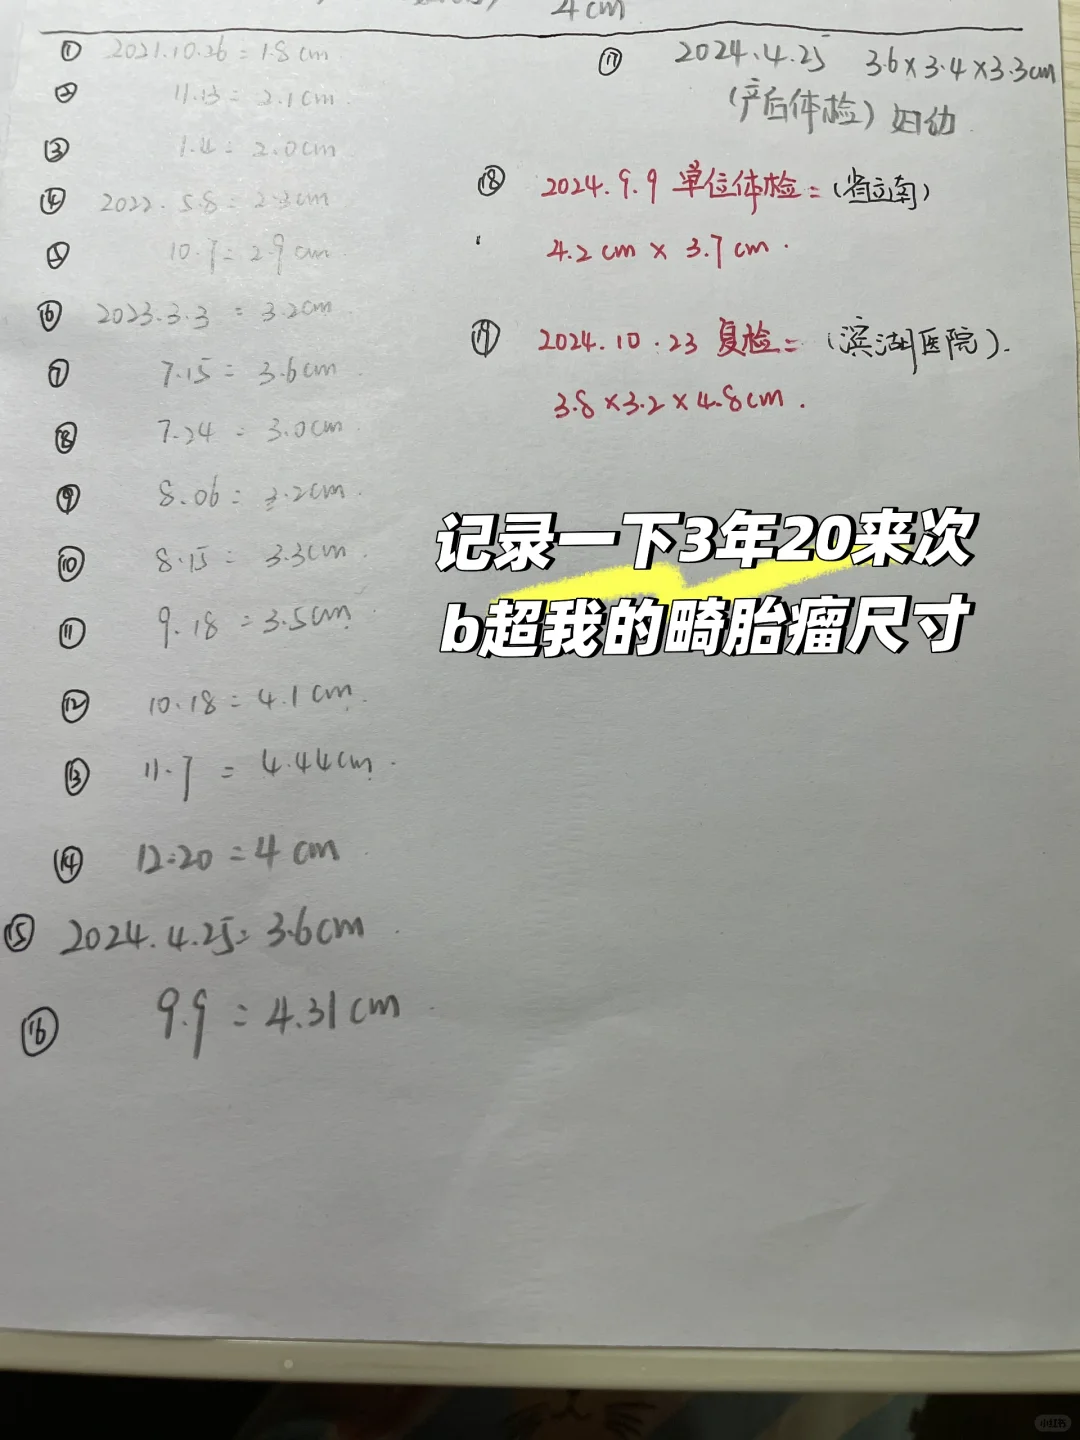 4cm
① 2021.10.26 = 1.8cm
② 11.13 = 2.1cm
③ 1.4 = 2.0cm
④ 2022. 5.8 = 2.3cm
⑤ 10.7 = 2.9cm
⑥ 2023.3.3 = 3.2cm
⑦ 7.15 = 3.6cm
⑧ 7.24 = 3.0cm
⑨ 8.06 = 3.2cm
⑩ 8.15 = 3.3cm
⑪ 9.18 = 3.5cm
⑫ 10.18 = 4.1cm
⑬ 11.7 = 4.44cm
⑭ 12.20 = 4cm
⑮ 2024.4.25 = 3.6cm
⑯ 9.9 = 4.31cm
⑰ 2024.4.25 3.6×3.4×3.3cm
(产后体检) 妇幼
⑱ 2024.9.9 单位体检= (省立南)
4.2cm × 3.7cm.
⑲ 2024.10.23 复检= (滨湖医院).
3.8×3.2×4.8cm.
记录一下3年20来次
b超我的畸胎瘤尺寸
小红书